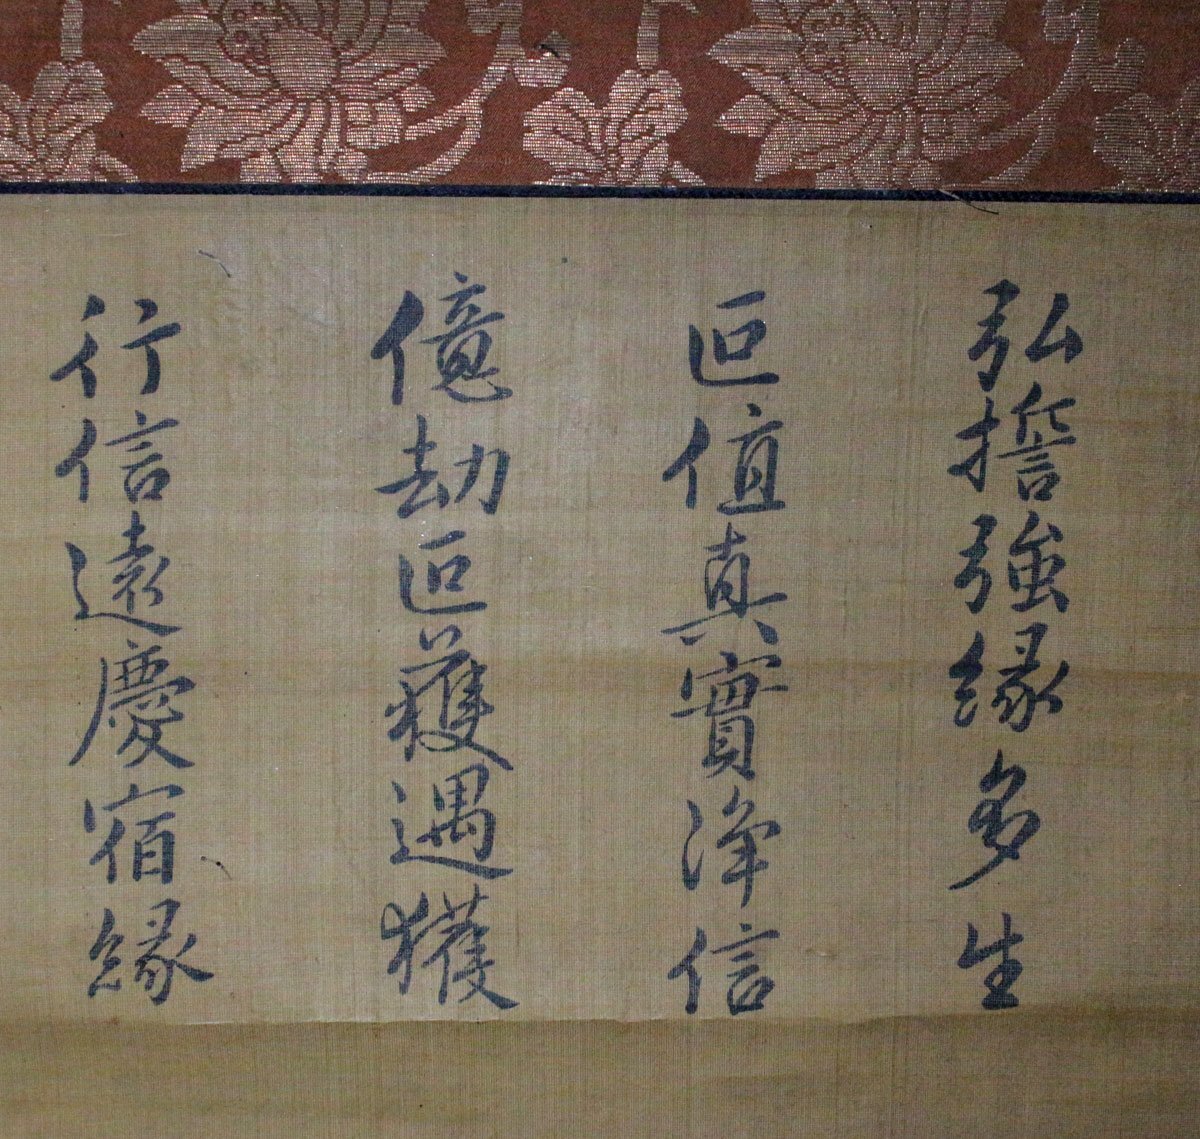 弘誓強縁多生
叵值真實淨信
億劫叵獲遇獲
行信遠慶宿縁